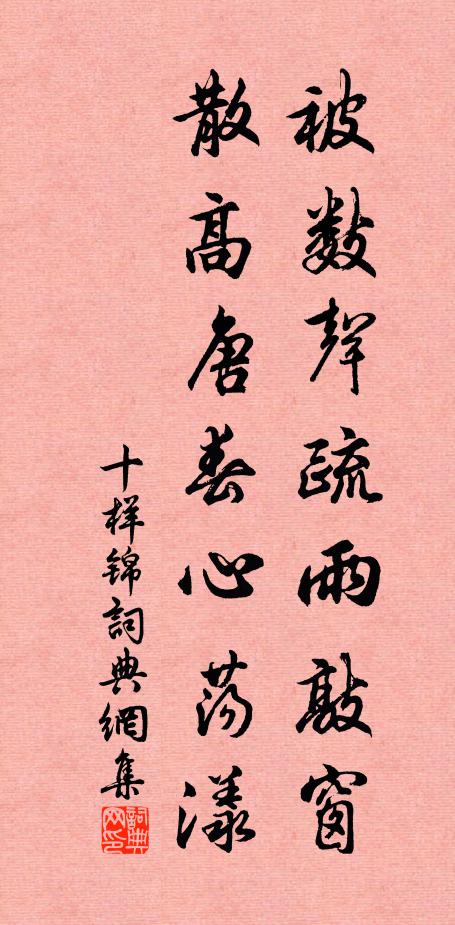 被數聲疏雨敲窗
散高唐春心蕩漾
十样锦詞典網集
詞典网印